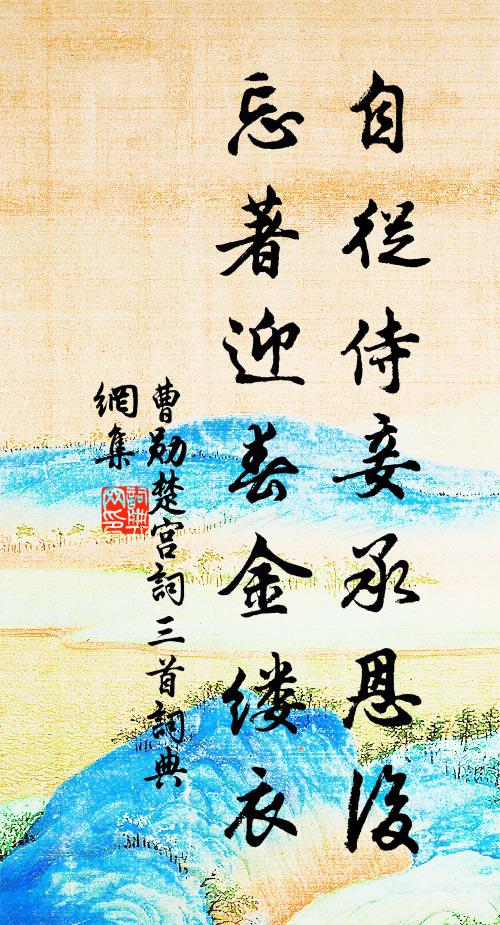 自從侍妾承恩後
忘著迎春金缕衣
曹勛楚宫詞三首詞典
網集
詞典
网印